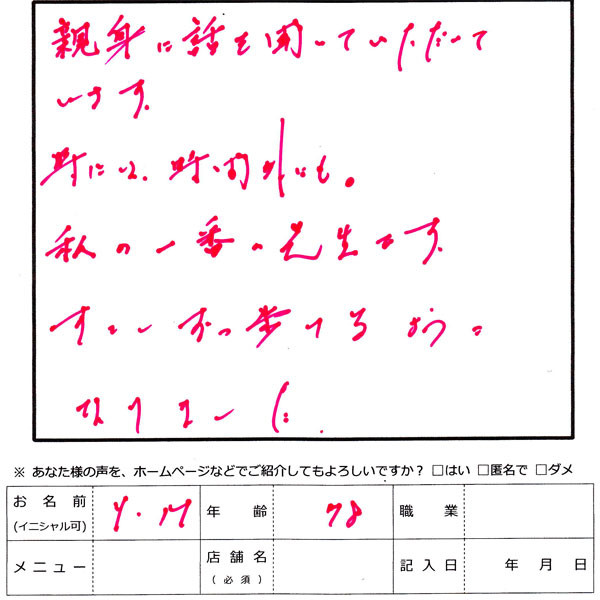 親身に話を聞いていただいて
います。
時には、時間外にも。
私の一番の先生です。
すこしずつ歩けるように
なりました。
※ あなた様の声を、ホームページなどでご紹介してもよろしいですか？ □はい □匿名で □ダメ
お名前 (イニシャル可) Y・M 年齢 78 職業
メニュー 店舗名 (必須) 記入日 年 月 日